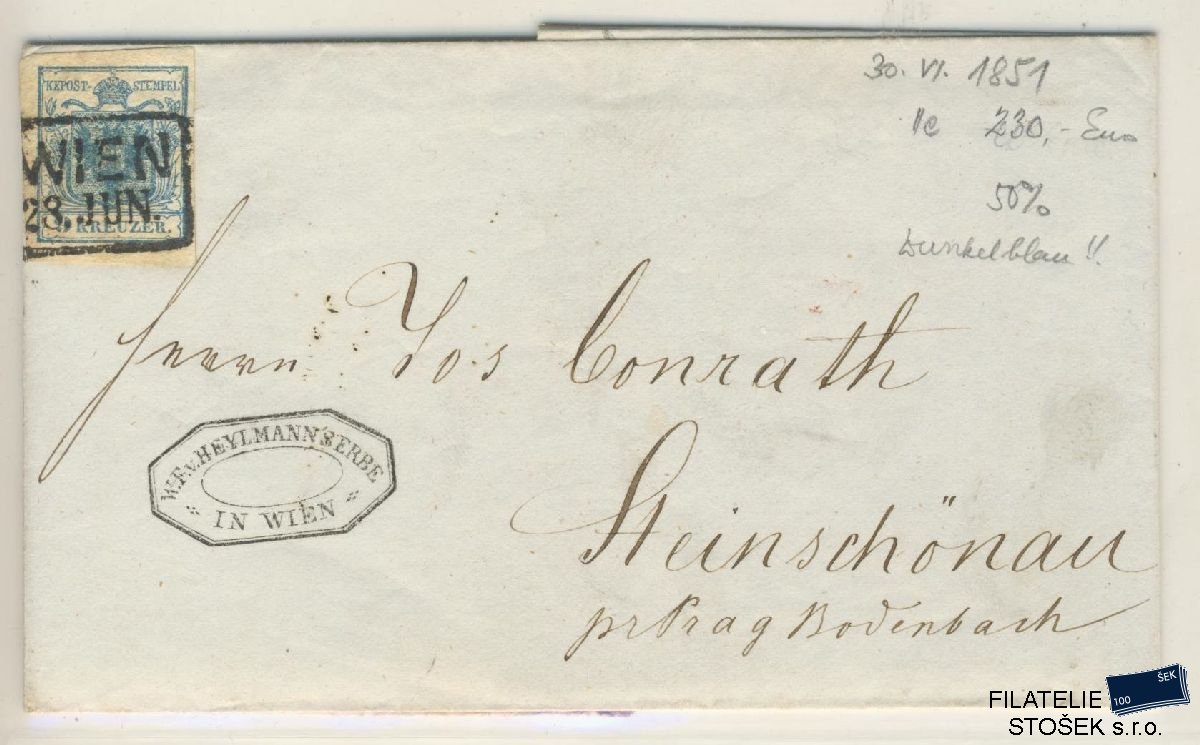 KKPOST-STEMPEL
WIEN
28. JUN.
9 KREUZER.
30. VI. 1851
IIc 230,- Euro
50%
Dunkelblau!!
Herrn Jos Conrath
W.F.v. HEYLMANN'S ERBE
IN WIEN
Steinschönau
pr Prag Bodenbach
FILATELIE
STOŠEK s.r.o.
100 ŠEK